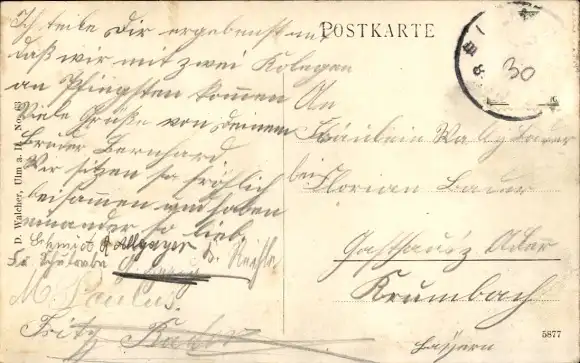 Ich teile Dir ergebenst mit
daß wir mit zwei Kolegen
an Pfingsten kommen
Viele Grüße von deinem
Bruder Bernhard
Wir sitzen so fröhlich
beisammen und haben
einander so lieb
Schmid
M. Paulus.
Fritz
A. D. Walcher, Ulm a. D.
POSTKARTE
30
An
Fräulein
bei
Florian Bauer
Gasthaus z Adler
Krumbach
Bayern
5877